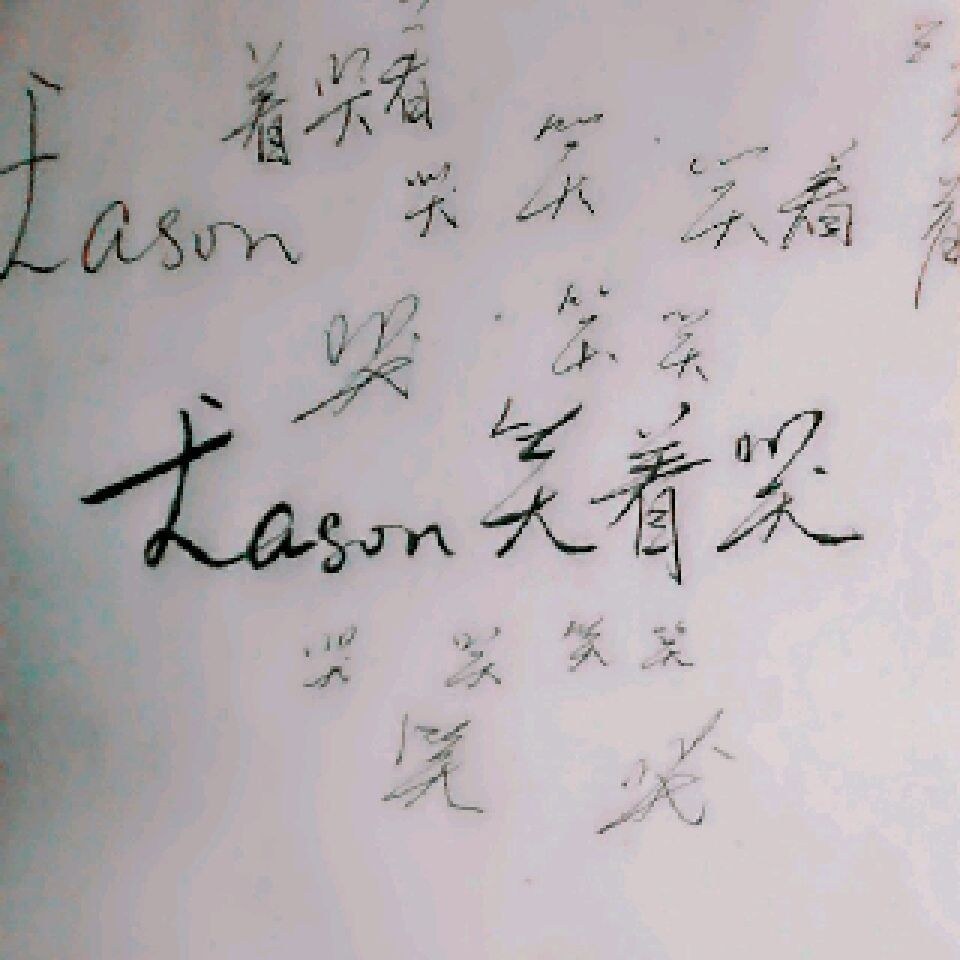 着哭着
Eason 哭 笑 笑着
哭 笑 笑
Eason 笑着哭
哭 哭 笑 笑
笑 哭